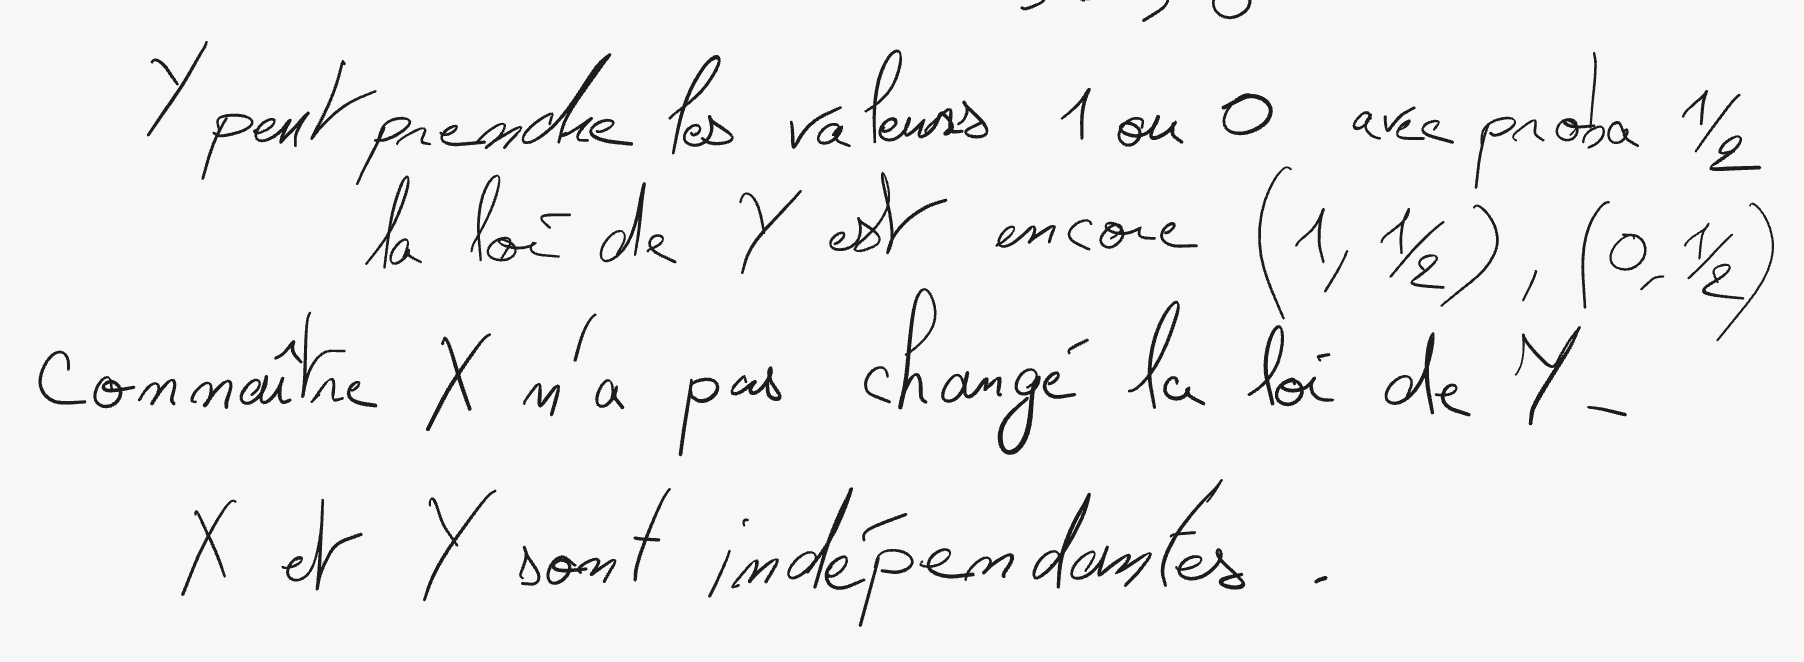 Y peut prendre les valeurs 1 ou 0 avec proba 1/2
la loi de Y est encore (1, 1/2), (0, 1/2)
Connaître X n'a pas changé la loi de Y -
X et Y sont indépendantes.